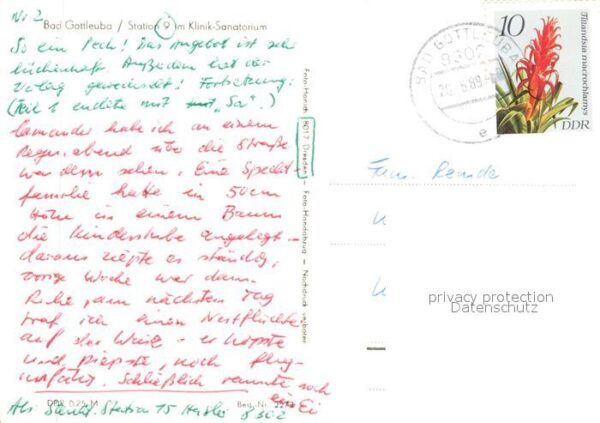 Nr 2
Bad Gottleuba / Station 9 im Klinik-Sanatorium
So ein Pech! Das Angebot ist sehr
lückenhaft. Außerdem hat der
Verlag gewechselt! Fortsetzung:
(Teil 1 endete mit "Sa".)
lamander habe ich an einem
Regenabend über die Straße
wandern sehen. Eine Specht-
familie hatte in 50cm
Höhe in einem Baum
die Kinderstube angelegt -
daraus piepte es ständig,
vorige Woche war dann
Ruhe, am nächsten Tag
traf ich einen Nestflüchter
auf der Wiese - er hopste
und piepste, noch flug-
unfähig. Schließlich rannte noch
ein Ei
DDR 0,25 M
Best.-Nr.
Station 15 8302
Foto-Handr. 8017 Dresden - Foto-Handabzug - Nachdruck verboten
BAD GOTTLEUBA
8302
89
e
10
Tillandsia macrochlamys
DDR
Fam.
privacy protection
Datenschutz